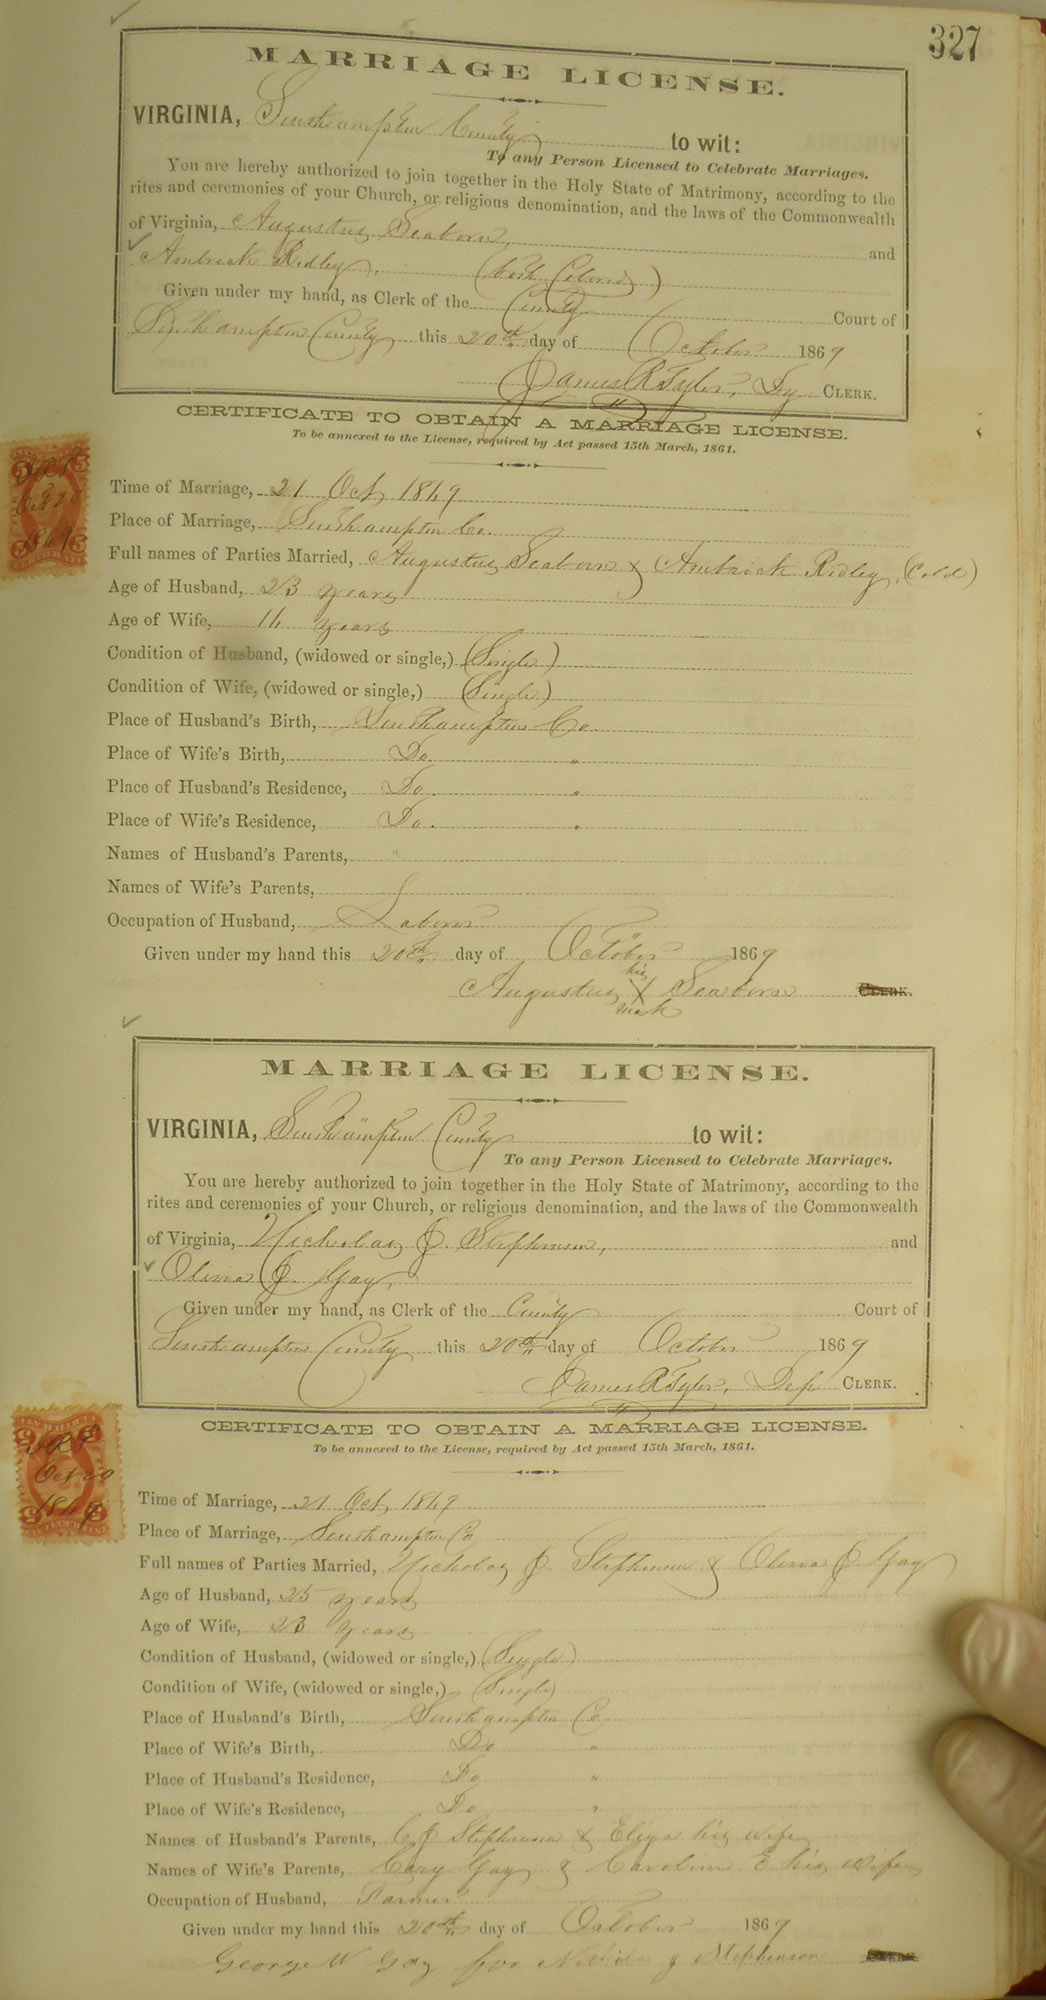 327
MARRIAGE LICENSE.
VIRGINIA, Southampton County to wit:
To any Person Licensed to Celebrate Marriages.
You are hereby authorized to join together in the Holy State of Matrimony, according to the
rites and ceremonies of your Church, or religious denomination, and the laws of the Commonwealth
of Virginia, Augustus Seaborn, and
Ambrick Ridley. (both Colored)
Given under my hand, as Clerk of the County Court of
Southampton County this 20th day of October 1869
James R Tyler, Dy CLERK.
CERTIFICATE TO OBTAIN A MARRIAGE LICENSE.
To be annexed to the License, required by Act passed 15th March, 1861.
Oct 20
1869
Time of Marriage, 21 Oct 1869
Place of Marriage, Southampton Co.
Full names of Parties Married, Augustus Seaborn & Ambrick Ridley, (Cold)
Age of Husband, 23 years
Age of Wife, 16 years
Condition of Husband, (widowed or single,) (Single)
Condition of Wife, (widowed or single,) (Single)
Place of Husband's Birth, Southampton Co
Place of Wife's Birth, Do "
Place of Husband's Residence, Do. "
Place of Wife's Residence, Do. "
Names of Husband's Parents,
Names of Wife's Parents,
Occupation of Husband, Laborer
Given under my hand this 20th day of October 1869
his
Augustus X Seaborn CLERK.
mark
MARRIAGE LICENSE.
VIRGINIA, Southampton County to wit:
To any Person Licensed to Celebrate Marriages.
You are hereby authorized to join together in the Holy State of Matrimony, according to the
rites and ceremonies of your Church, or religious denomination, and the laws of the Commonwealth
of Virginia, Nicholas J. Stephenson, and
Olivia J. Gay,
Given under my hand, as Clerk of the County Court of
Southampton County this 20th day of October 1869
James R Tyler, Dep CLERK.
CERTIFICATE TO OBTAIN A MARRIAGE LICENSE.
To be annexed to the License, required by Act passed 15th March, 1861.
Oct 20
1869
Time of Marriage, 21 Oct 1869
Place of Marriage, Southampton Co
Full names of Parties Married, Nicholas J. Stephenson & Olivia J. Gay
Age of Husband, 25 years
Age of Wife, 23 years
Condition of Husband, (widowed or single,) (Single)
Condition of Wife, (widowed or single,) (Single)
Place of Husband's Birth, Southampton Co
Place of Wife's Birth, Do "
Place of Husband's Residence, Do "
Place of Wife's Residence, Do "
Names of Husband's Parents, C J Stephenson & Eliza his wife
Names of Wife's Parents, Cary Gay & Caroline E his wife
Occupation of Husband, Farmer
Given under my hand this 20th day of October 1869
George W Gay for Nicholas J Stephenson CLERK